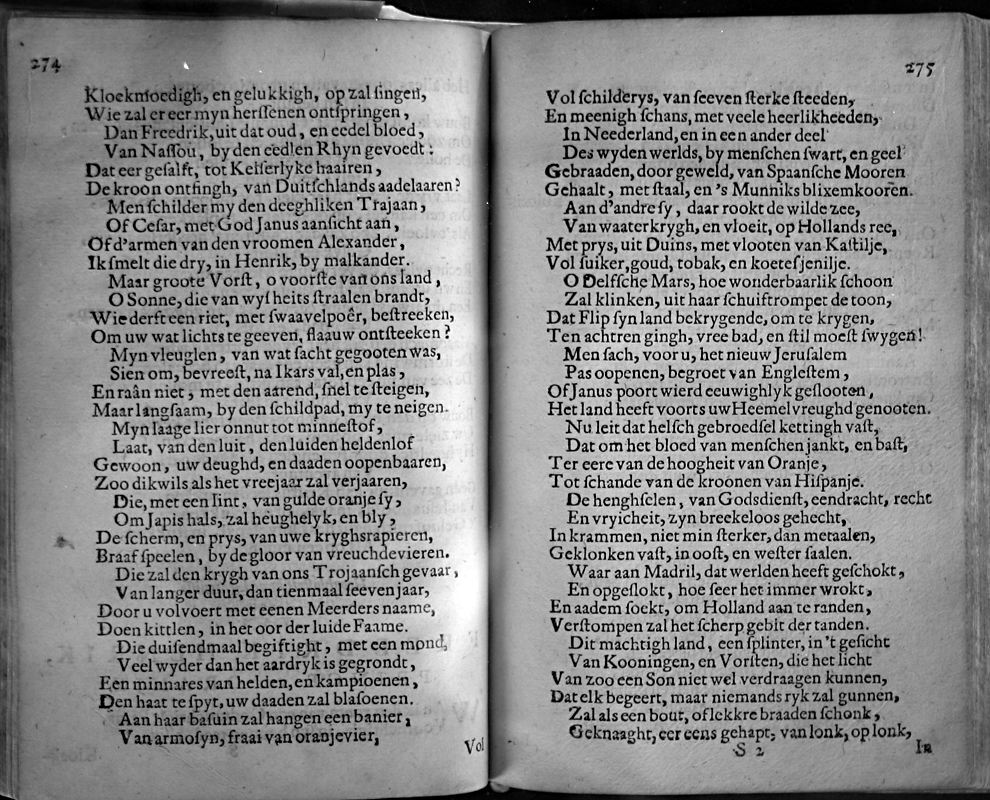 274
Kloekmoedigh, en gelukkigh, op zal singen,
Wie zal er eer myn herssenen ontspringen,
Dan Freedrik, uit dat oud, en eedel bloed,
Van Nassou, by den eedlen Rhyn gevoedt:
Dat eer gesalft, tot Keiserlyke haairen,
De kroon ontfingh, van Duitschlands aadelaaren?
Men schilder my den deeghliken Trajaan,
Of Cesar, met God Janus aansicht aan,
Of d'armen van den vroomen Alexander,
Ik smelt die dry, in Henrik, by malkander.
Maar groote Vorst, o voorste van ons land,
O Sonne, die van wysheits straalen brandt,
Wie derft een riet, met swaavelpoêr, bestreeken,
Om uw wat lichts te geeven, flaauw ontsteeken?
Myn vleuglen, van wat sacht gegooten was,
Sien om, bevreest, na Ikars val, en plas,
En raân niet, met den aarend, snel te steigen,
Maar langsaam, by den schildpad, my te neigen.
Myn laage lier onnut tot minnestof,
Laat, van den luit, den luiden heldenlof
Gewoon, uw deughd, en daaden oopenbaaren,
Zoo dikwils als het vreejaar zal verjaaren,
Die, met een lint, van gulde oranje sy,
Om Japis hals, zal heughelyk, en bly,
De scherm, en prys, van uwe kryghsrapieren,
Braaf speelen, by de gloor van vreuchdevieren.
Die zal den krygh van ons Trojaansch gevaar,
Van langer duur, dan tienmaal seeven jaar,
Door u volvoert met eenen Meerders naame,
Doen kittlen, in het oor der luide Faame.
Die duisendmaal begiftight, met een mond,
Veel wyder dan het aardryk is gegrondt,
Een minnares van helden, en kampioenen,
Den haat te spyt, uw daaden zal blasoenen.
Aan haar basuin zal hangen een banier,
Van armosyn, fraai van oranjevier,
Vol
275
Vol schilderys, van seeven sterke steeden,
En meenigh schans, met veele heerlikheeden,
In Neederland, en in een ander deel
Des wyden werlds, by menschen swart, en geel
Gebraaden, door geweld, van Spaansche Mooren
Gehaalt, met staal, en 's Munniks blixemkooren.
Aan d'andre sy, daar rookt de wilde zee,
Van waaterkrygh, en vloeit, op Hollands ree,
Met prys, uit Duins, met vlooten van Kastilje,
Vol suiker, goud, tobak, en koetesjenilje.
O Delfsche Mars, hoe wonderbaarlik schoon
Zal klinken, uit haar schuiftrompet de toon,
Dat Flip syn land bekrygende, om te krygen,
Ten achtren gingh, vree bad, en stil moest swygen!
Men sach, voor u, het nieuw Jerusalem
Pas oopenen, begroet van Englestem,
Of Janus poort wierd eeuwighlyk geslooten,
Het land heeft voorts uw Heemel vreughd genooten.
Nu leit dat helsch gebroedsel kettingh vast,
Dat om het bloed van menschen jankt, en bast,
Ter eere van de hoogheit van Oranje,
Tot schande van de kroonen van Hispanje.
De henghselen, van Godsdienst, eendracht, recht
En vryicheit, zyn breekeloos gehecht,
In krammen, niet min sterker, dan metaalen,
Geklonken vast, in oost, en wester saalen.
Waar aan Madril, dat werlden heeft geschokt,
En opgeslokt, hoe seer het immer wrokt,
En aadem soekt, om Holland aan te randen,
Verstompen zal het scherp gebit der tanden.
Dit machtigh land, een splinter, in 't gesicht
Van Kooningen, en Vorsten, die het licht
Van zoo een Son niet wel verdraagen kunnen,
Dat elk begeert, maar niemands ryk zal gunnen,
Zal als een bout, of lekkre braaden schonk,
Geknaaght, eer eens gehapt, van lonk, op lonk,
S 2
In